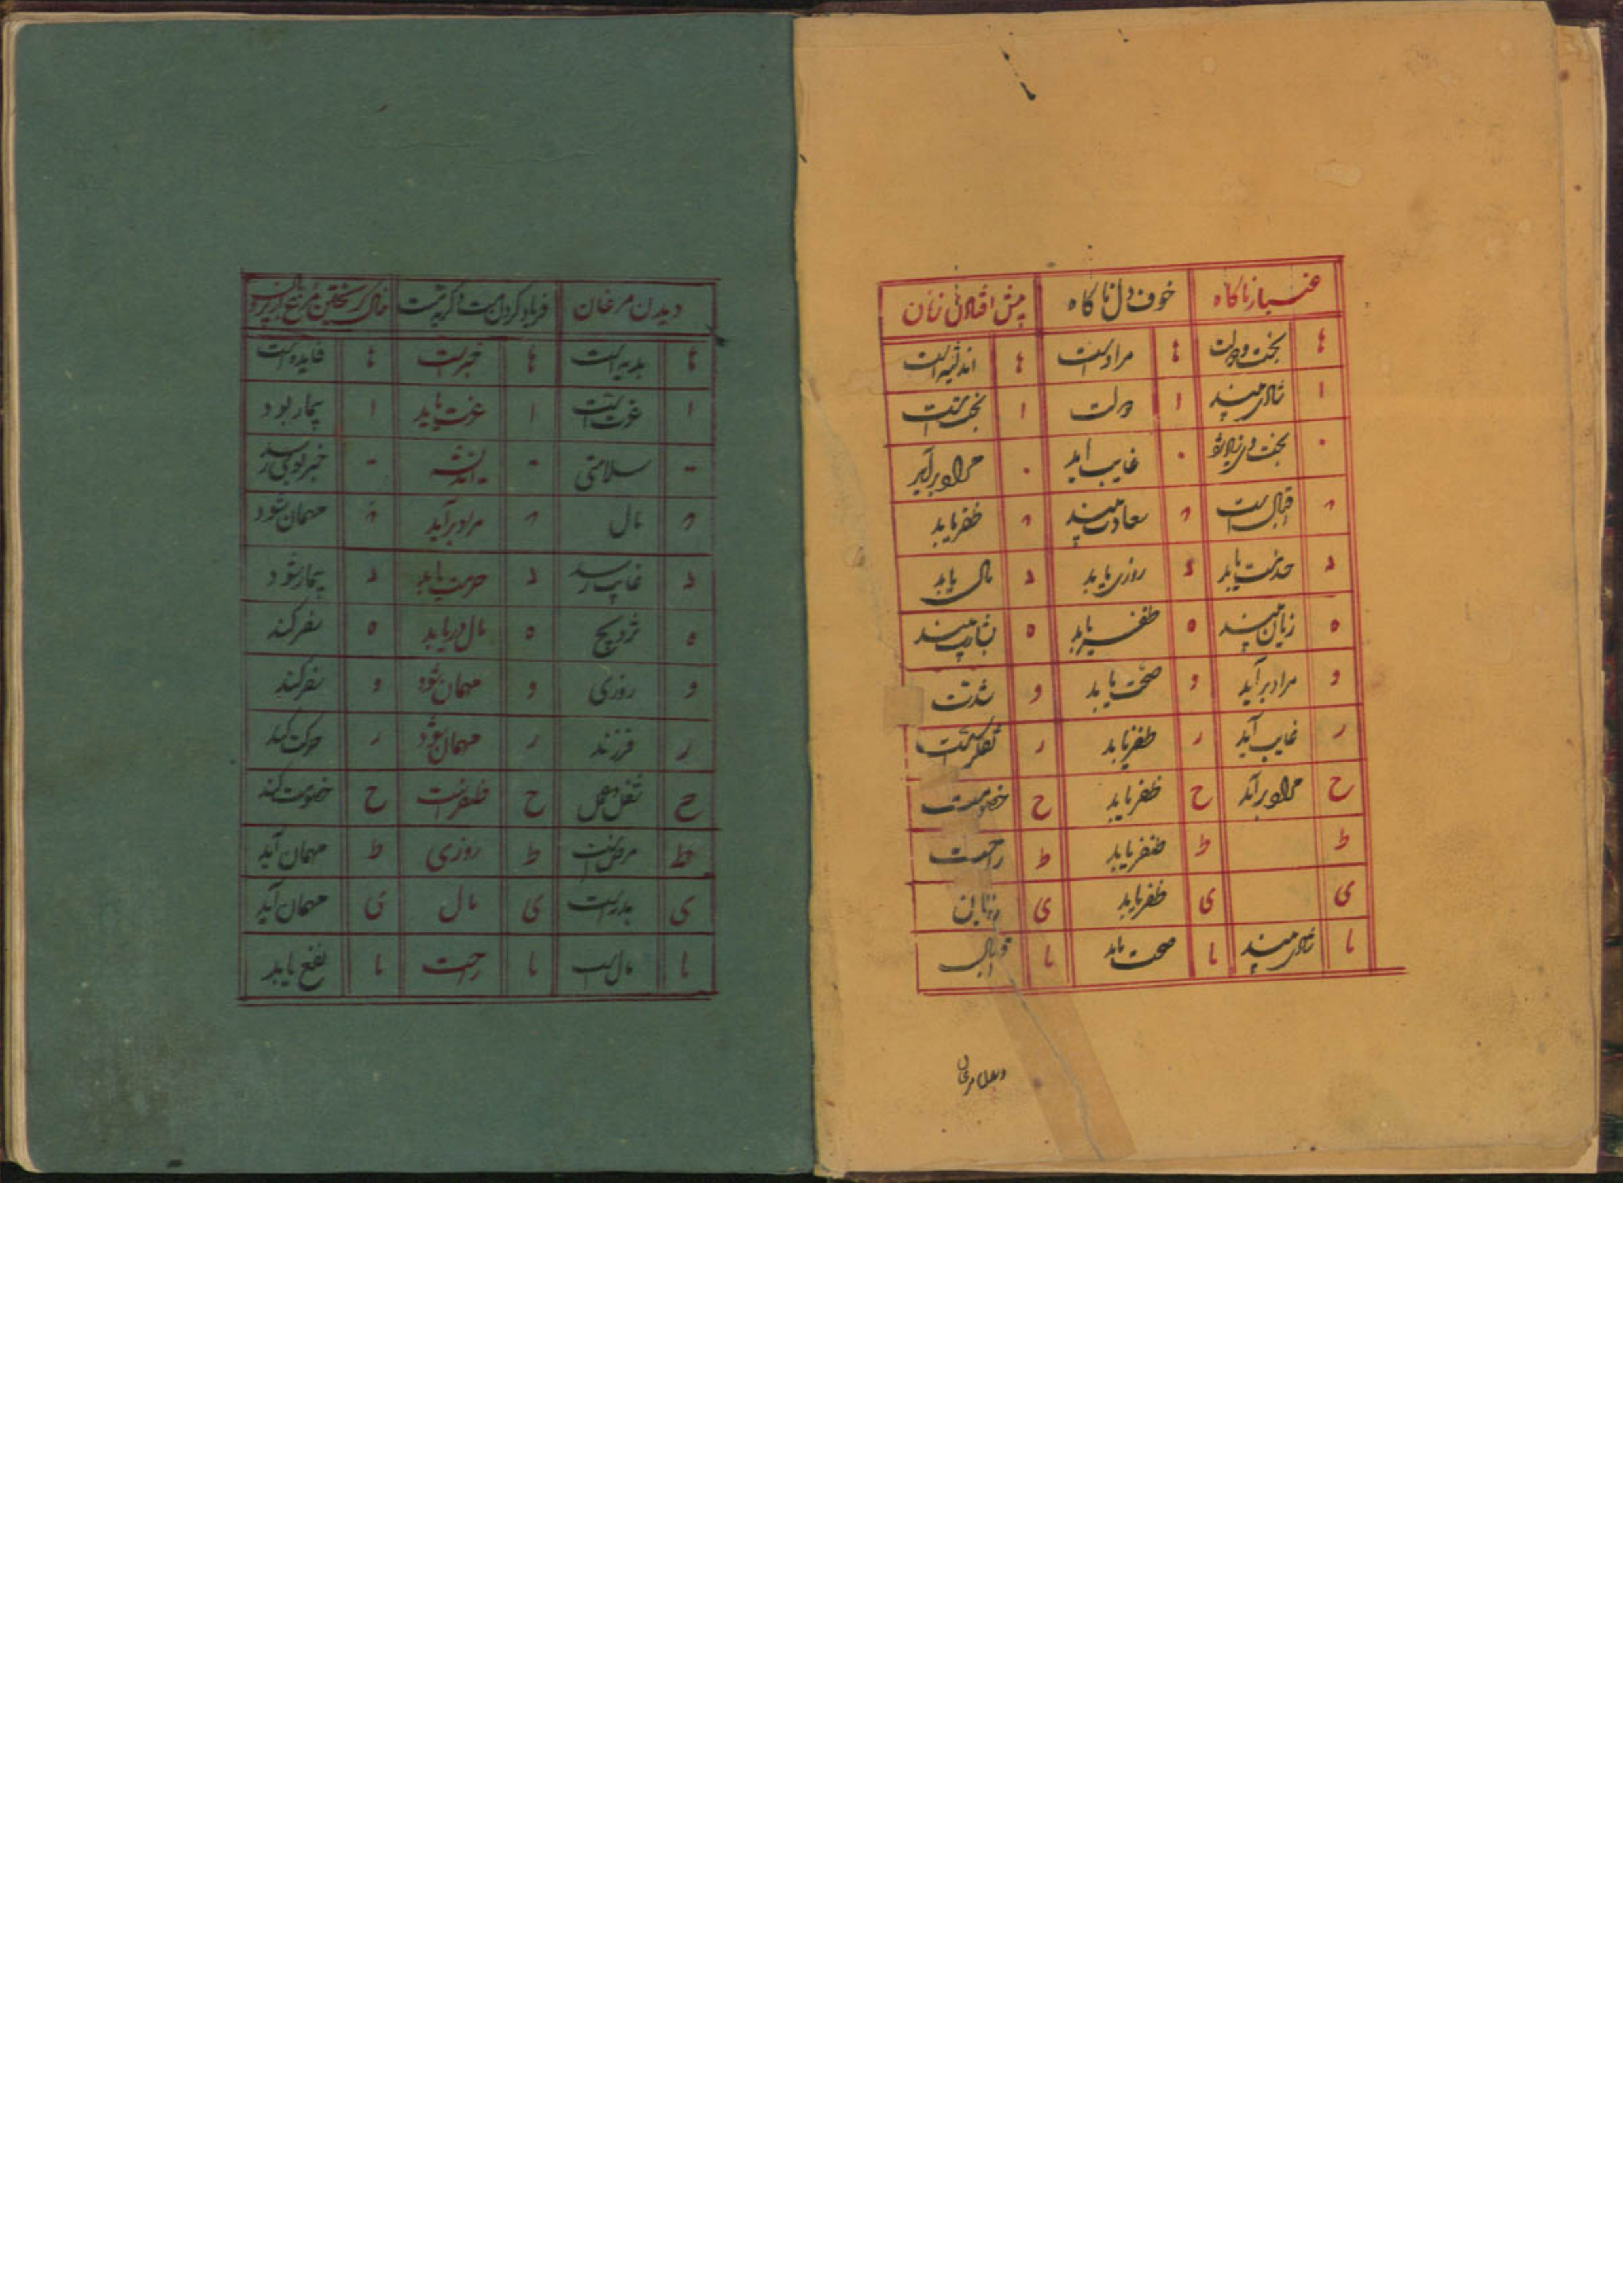 غبار ناکاه خوف دل ناکاه پیش افتادن زنان
ها بخت و دولت ها مراد است ها اندیشه است
ا شادی بیند ا دولت ا نجست است
۰ بخت وی زیاده شود ۰ غایب آید ۰ مراد برآید
۲ اقبال است ۲ سعادت بیند ۲ ظفر یابد
د خدمت یابد د روزی یابد د مال یابد
ه زیان بیند ه ظفر یابد ه بشارت بیند
و مراد برآید و صحت یابد و شدت
ر غایب آید ر ظفر یابد ر تفکر است
ح مراد برآید ح ظفر یابد ح خصومت
ط ط ظفر یابد ط راحت
ی ی ظفر یابد ی
یا شادی بیند یا صحت یابد یا
دیدن مرغان
دیدن مرغان فریاد کردن
ها هدیه است ها خبر است ها فایده است
ا عزت است ا عزت یابد ا بیمار بود
- سلامتی - اندیشه - خبر خوبی رسد
۲ مال ۲ مراد برآید ۲ مهمان شود
د غایب رسد د حرمت یابد د بیمار شود
ه تزویج ه مال دریابد ه سفر کند
و روزی و مهمان شود و سفر کند
ر فرزند ر مهمان شود ر حرکت کند
ح ح ظفر است ح خصومت کند
ط مرض است ط روزی ط مهمان آید
ی هدیه است ی مال ی مهمان آید
یا مال است یا راحت یا نفع یابد